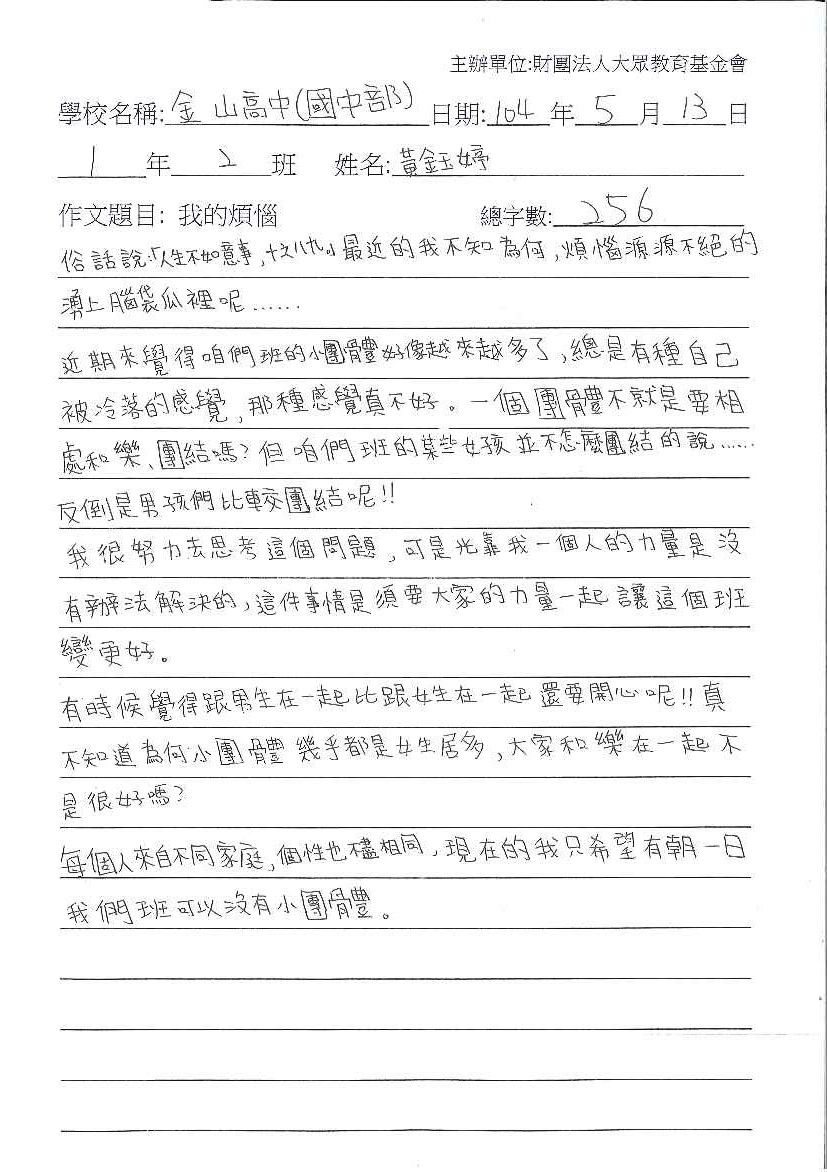 主辦單位:財團法人大眾教育基金會
學校名稱: 金山高中(國中部) 日期:104 年 5 月 13 日
1 年 2 班 姓名: 黃鈺婷
作文題目: 我的煩惱 總字數: 256
俗話說:「人生不如意事,十之八九。」最近的我不知為何,煩惱源源不絕的
湧上腦袋瓜裡呢……
近期來覺得咱們班的小團體好像越來越多了,總是有種自己
被冷落的感覺,那種感覺真不好。一個團體不就是要相
處和樂、團結嗎?但咱們班的某些女孩並不怎麼團結的說……
反倒是男孩們比較團結呢!!
我很努力去思考這個問題,可是光靠我一個人的力量是沒
有辦法解決的,這件事情是須要大家的力量一起讓這個班
變更好。
有時候覺得跟男生在一起比跟女生在一起還要開心呢!!真
不知道為何小團體幾乎都是女生居多,大家和樂在一起不
是很好嗎?
每個人來自不同家庭,個性也不儘相同,現在的我只希望有朝一日
我們班可以沒有小團體。